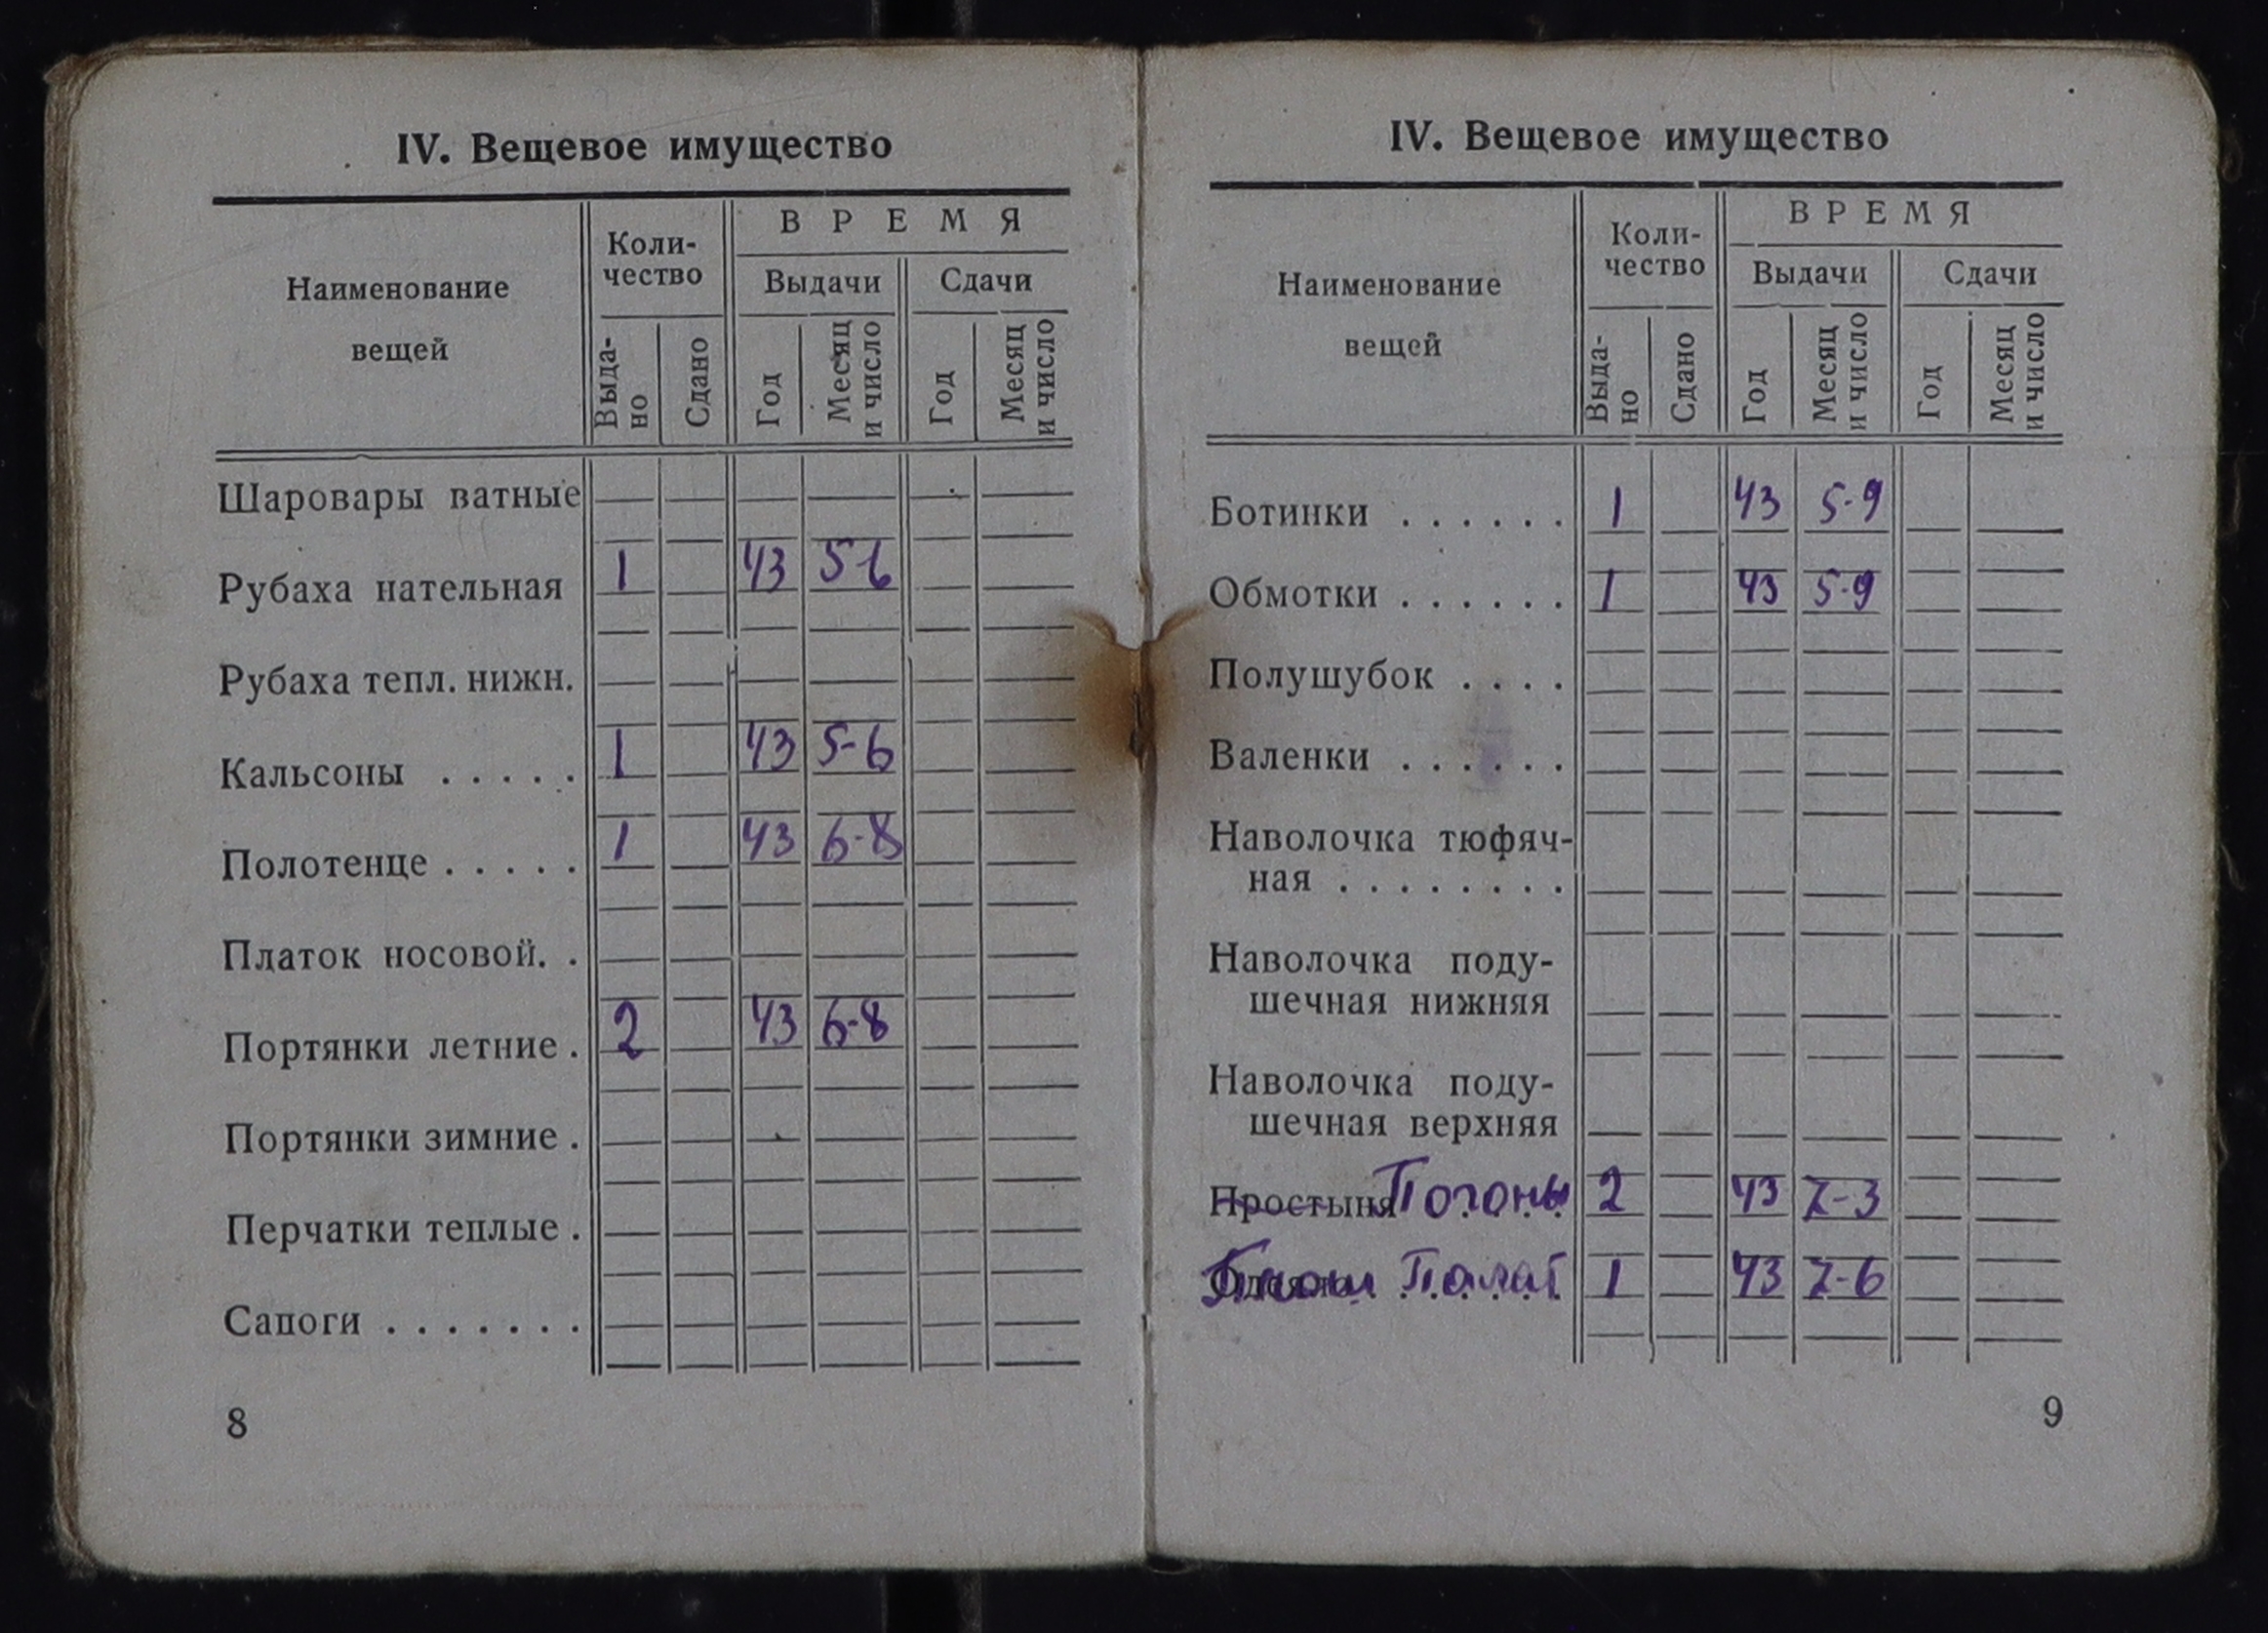 IV. Вещевое имущество
Наименование вещей
Коли-
чество
ВРЕМЯ
Выдачи
Сдачи
Выда-
но
Сдано
Год
Месяц
и число
Год
Месяц
и число
Шаровары ватные
Рубаха нательная 1 43 5-6
Рубаха тепл. нижн.
Кальсоны . . . . . 1 43 5-6
Полотенце . . . . . 1 43 6-8
Платок носовой. .
Портянки летние . 2 43 6-8
Портянки зимние .
Перчатки теплые .
Сапоги . . . . . . .
8
IV. Вещевое имущество
Наименование вещей
Коли-
чество
ВРЕМЯ
Выдачи
Сдачи
Выда-
но
Сдано
Год
Месяц
и число
Год
Месяц
и число
Ботинки . . . . . . 1 43 5-9
Обмотки . . . . . . 1 43 5-9
Полушубок . . . .
Валенки . . . . . .
Наволочка тюфяч-
ная . . . . . . . .
Наволочка поду-
шечная нижняя
Наволочка поду-
шечная верхняя
Простыня Погоны 2 43 7-3
Палат 1 43 7-6
9